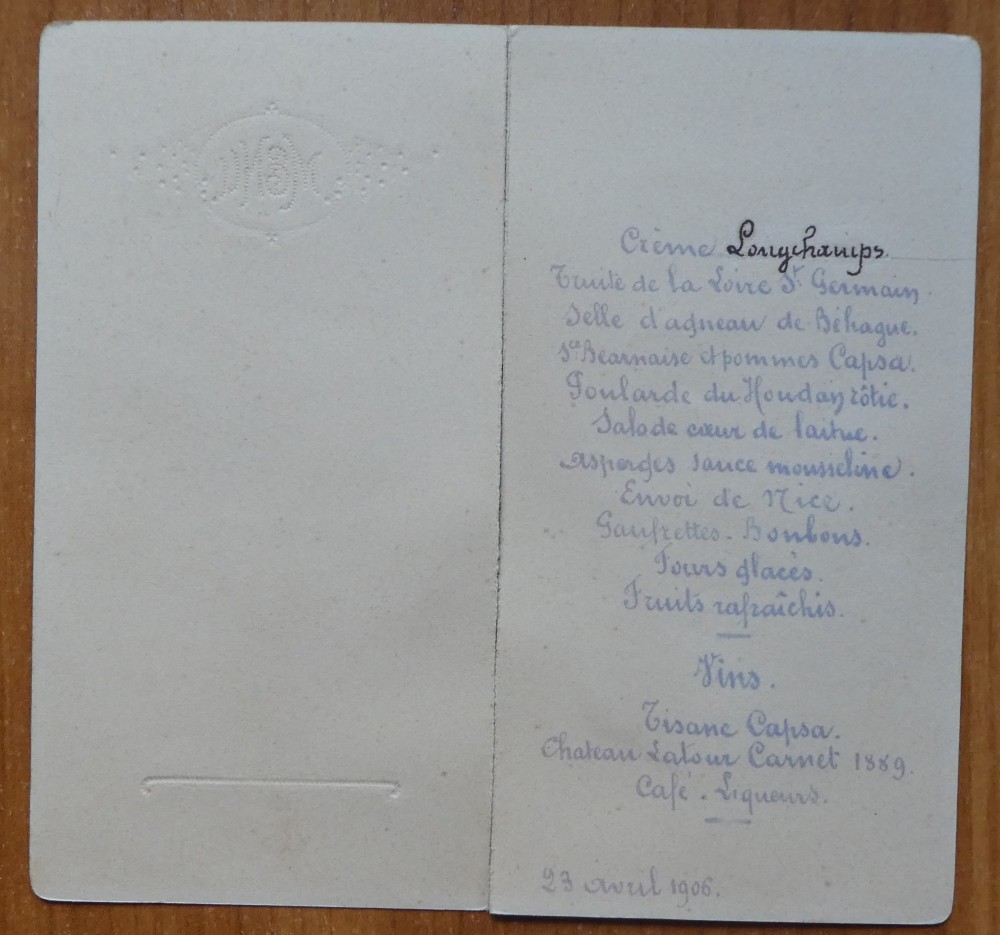 Crème Longchamps.
Truite de la Loire St Germain.
Selle d'agneau de Béhague.
Sce Bearnaise et pommes Capsa.
Poularde du Houdan rôtie.
Salade cœur de laitue.
Asperges sauce mousseline.
Envoi de Nice.
Gaufrettes. Bonbons.
Fours glacés.
Fruits rafraîchis.
Vins.
Tisane Capsa.
Chateau Latour Carnet 1889.
Café. Liqueurs.
23 avril 1906.